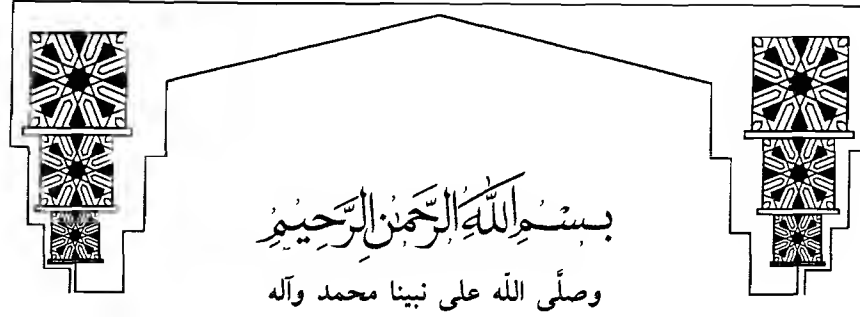 بِسْمِ اللَّهِ الرَّحْمَٰنِ الرَّحِيمِ
وصلَّى اللّه على نبينا محمد وآله